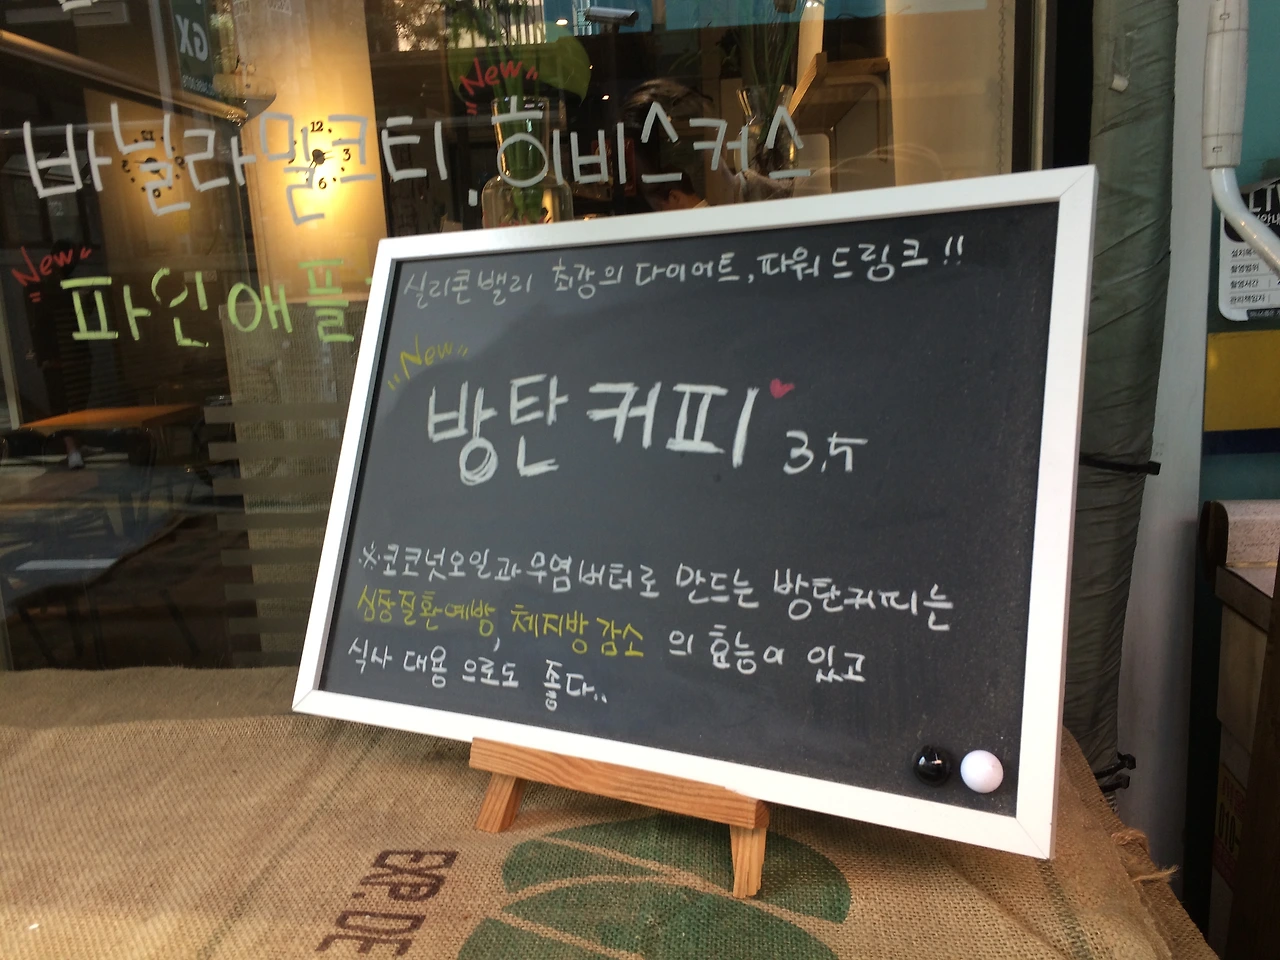 GX
"New"
바닐라밀크티, 히비스커스
12
3
6
"New"
파인애플
실리콘밸리 최강의 다이어트, 파워드링크!!
"New"
방탄커피♥ 3.5
※코코넛오일과 무염버터로 만드는 방탄커피는
심동질환예방, 체지방감소 의 효능이 있고
식사 대용 으로도 좋다..
설치목적
촬영범위
촬영시간
관리책임자
EXP.DE